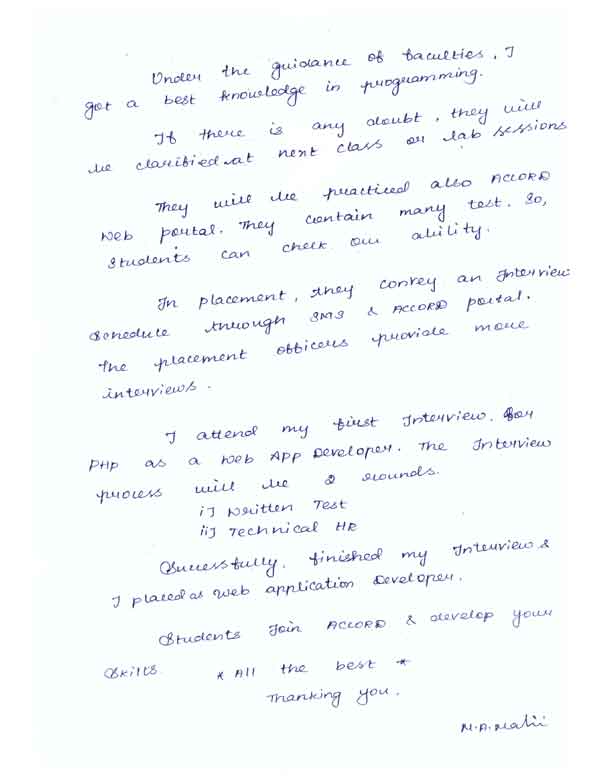 Under the guidance of faculties, I
got a best knowledge in programming.
If there is any doubt, they will
be clarified at next class or lab sessions
They will be practiced also ACCORD
Web portal. They contain many test. So,
Students can check our ability.
In placement, they convey an Interview
Schedule through SMS & ACCORD portal.
The placement officers provide more
interviews.
I attend my first Interview. for
PHP as a Web App Developer. The Interview
process will be 2 rounds.
i] Written Test
ii] Technical HR
Successfully, finished my Interview &
I placed as Web application Developer.
Students Join ACCORD & develop your
Skills.
* All the best *
Thanking you.
M.A.